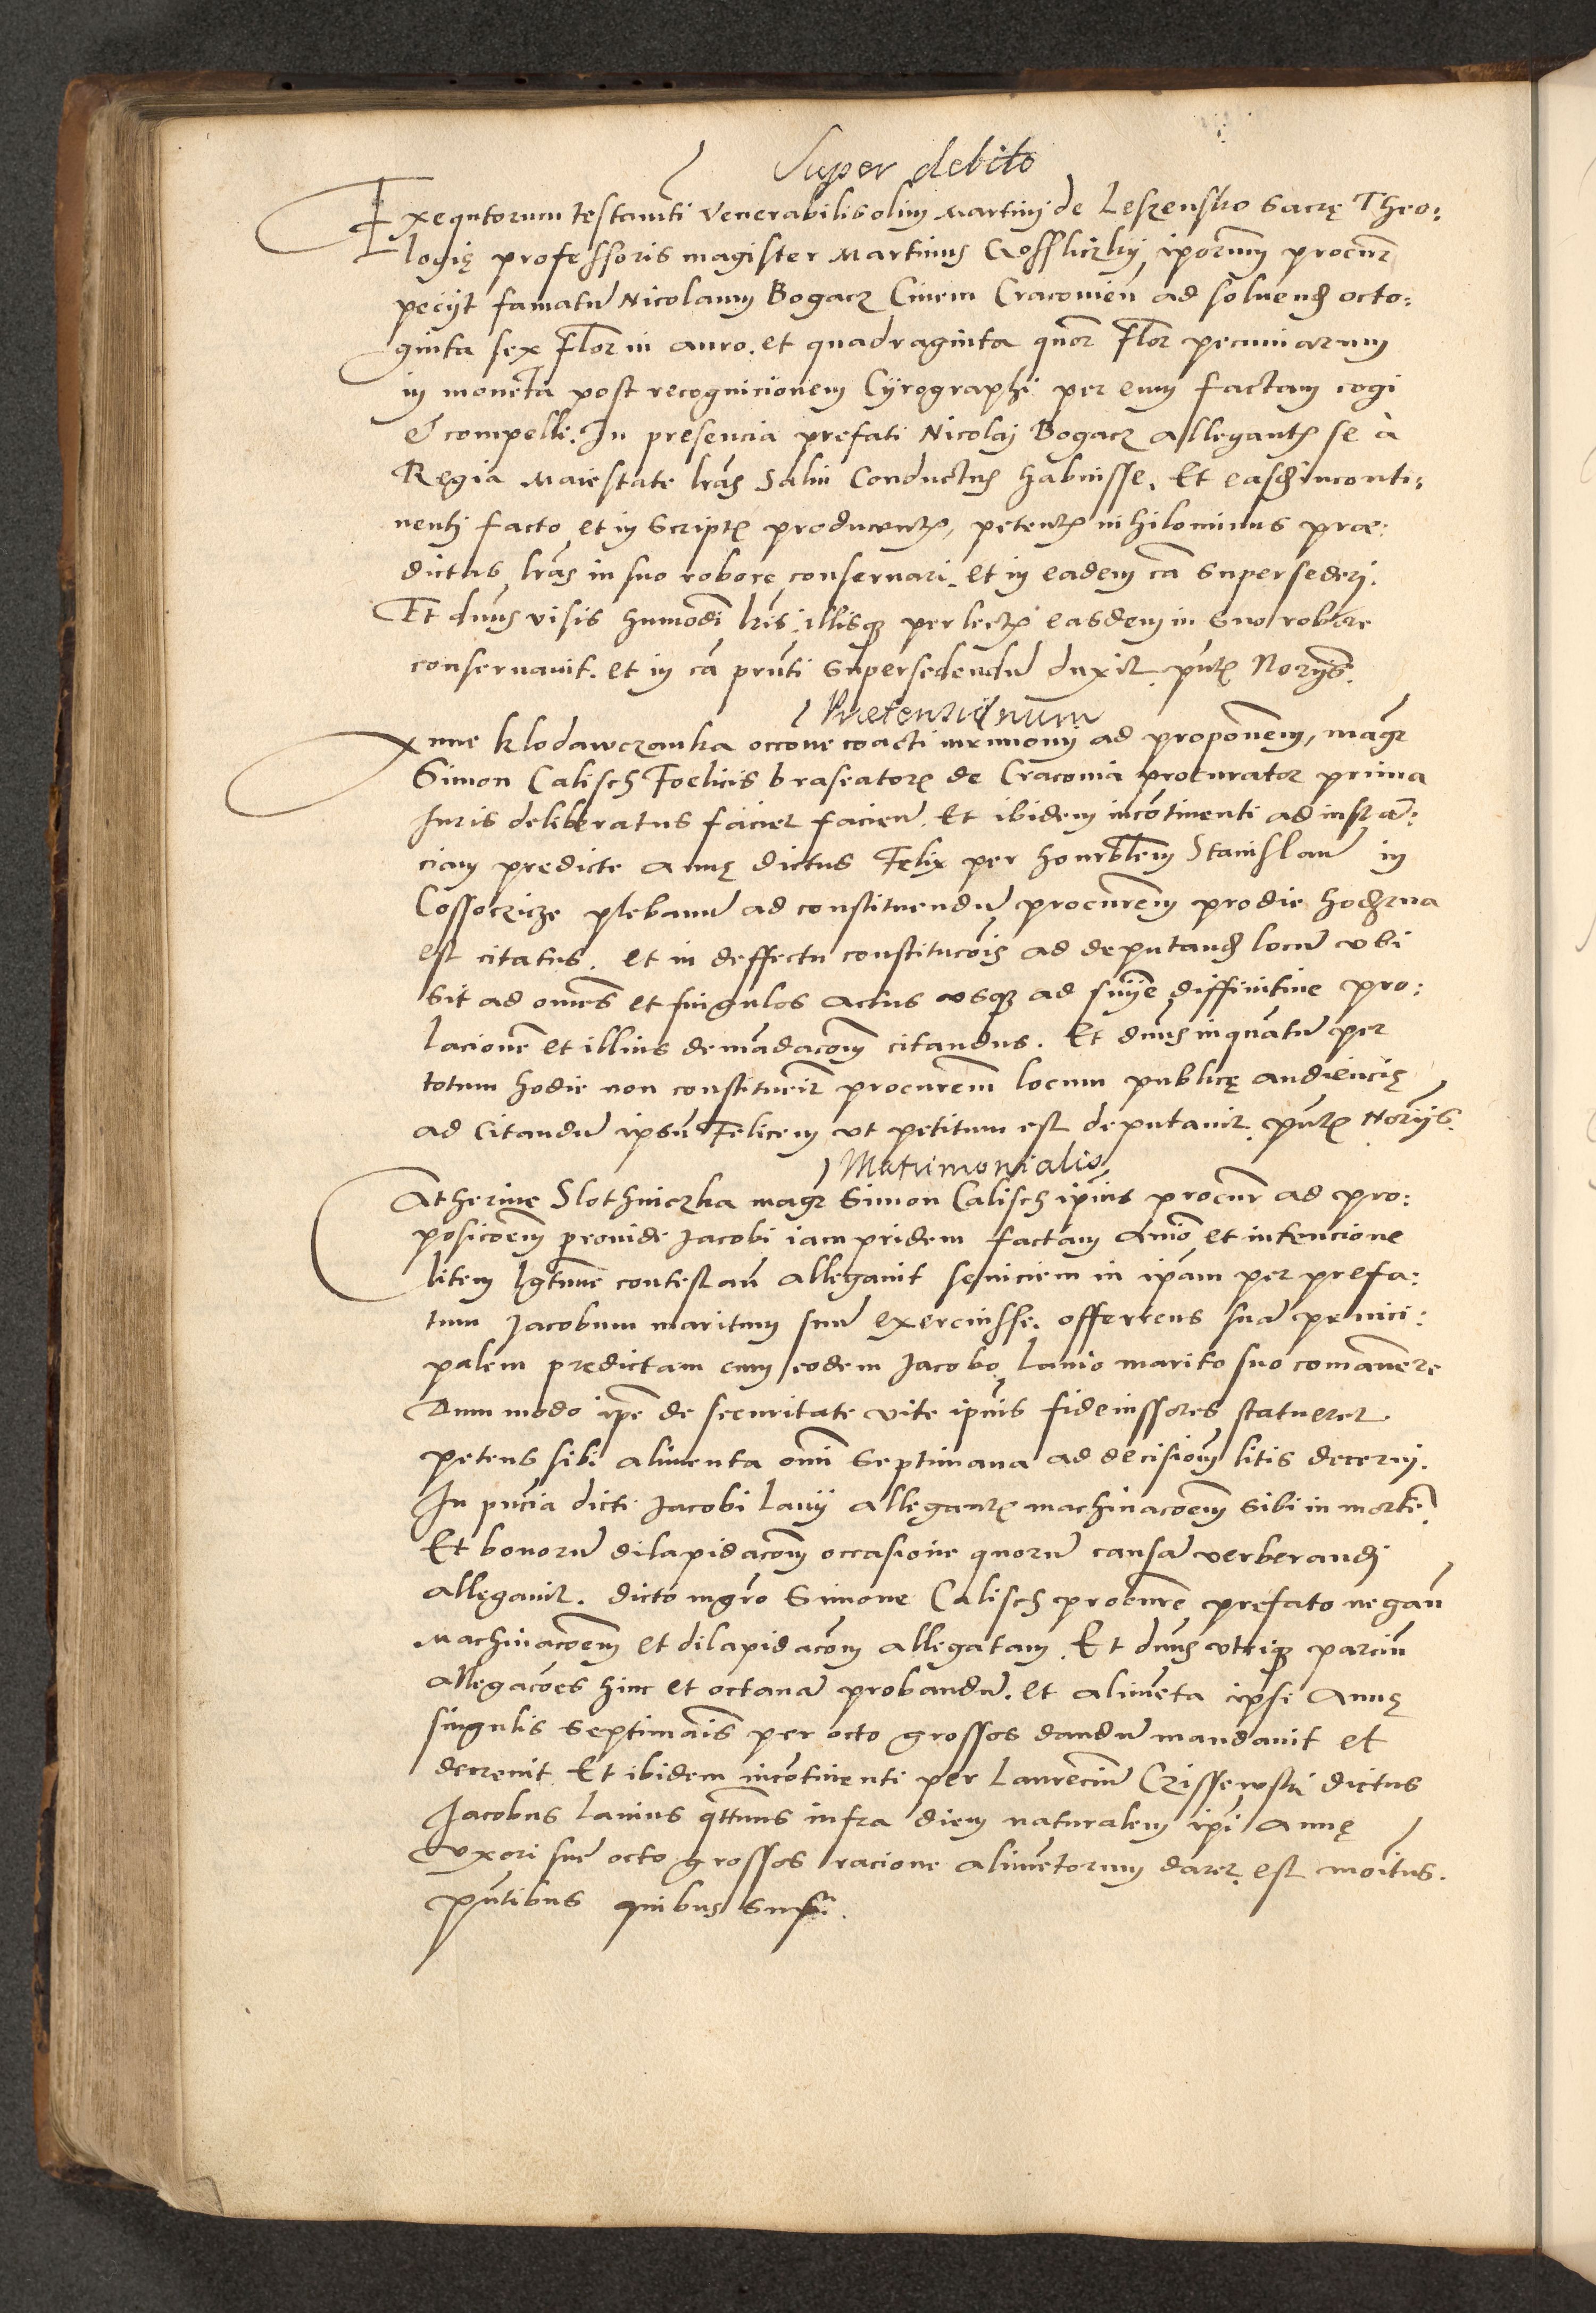 Super debito
Exequtorum testamti Venerabilis olim Martini de Leszensko Sacrę Theo:
logię professoris magister Martinus iporum procur
peciit famatu Nicolaum Bogacz Ciuem Cracouien ad soluend octo:
ginta sex Flor in auro. et quadraginta quor Flor pecuniarum
in moneta post recognicionem Cyrographi per eum factam cogi
& compelli. In presencia prefati Nicolai Bogacz allegantis se à
Regia Maiestate lras Salui Conductus habuisse. Et easd inconti:
nenti facto et in Scriptis producentis, petentis nihilominus præ:
dictas lras in suo robore conseruari. et in eadem ca Supersederi.
Et dnus visis humodi lris, illisq perlectis easdem in Suo robore
conseruauit. et in ca pnti Supersedendu duxit. pntibus Noriis.
Pretensionum
Anne Klodawczanka occone coacti mrimonii ad proponem, magr
Simon Calisch Foelicis braseatoris de Cracouia procurator prima
Juris deliberatus faciet facien. Et ibidem incontinenti ad instan:
ciam predicte Annę dictus Felix per honrblem Stanislau in
Cossoczicze plebanu ad constituendu procurem pro die hodierna
est citatus. et in deffectu constitucois ad deputand locu vbi
Sit ad omes et singulos actus vsq ad snie diffinitiue pro:
lacione et illius demadacom citandus. Et dnus inquatu per
totum hodie non constituerit procurem locum publicę audiencię
ad Citandu ipsu Felicem vt petitum est deputauit. pntibus Noriis.
Matrimonialis
Catherine Slothniczka magr Simon Calisch ipius procur ad pro:
posicoem prouidi Jacobi iampridem factam Anio et intencione
litem lgtime contestan allegauit seuiciem in ipam per prefa:
tum Jacobum maritum suu exercuisse. offerens sua princi:
palem predictam cum eodem Jacobo Lanio marito suo comanere
Dummodo ipe de securitate vite ipius fideiussores statueret
petens sibi alimenta omi Septimana ad decisiom litis decerni.
In pncia dicti Jacobi Lanii allegantis machinacoem Sibi in morte
Et bonoru dilapidacom occasione quoru causa verberandi
allegauit. dicto mgro Simone Calisch procure prefato negan
Machinacoem et dilapidacom allegatam. Et dnus vtriq parciu
allegacoes hinc et octaua probandu. et alimeta ipsi Annę
singulis Septimais per octo grossos dandu mandauit et
decreuit Et ibidem incotinenti per Laurenciu Czissewski dictus
Jacobus Lanius qttenus infra diem naturalem ipi Annę
Vxori sue octo grossos racione alimetorum daret. est moitus.
pntibus quibus Supr.